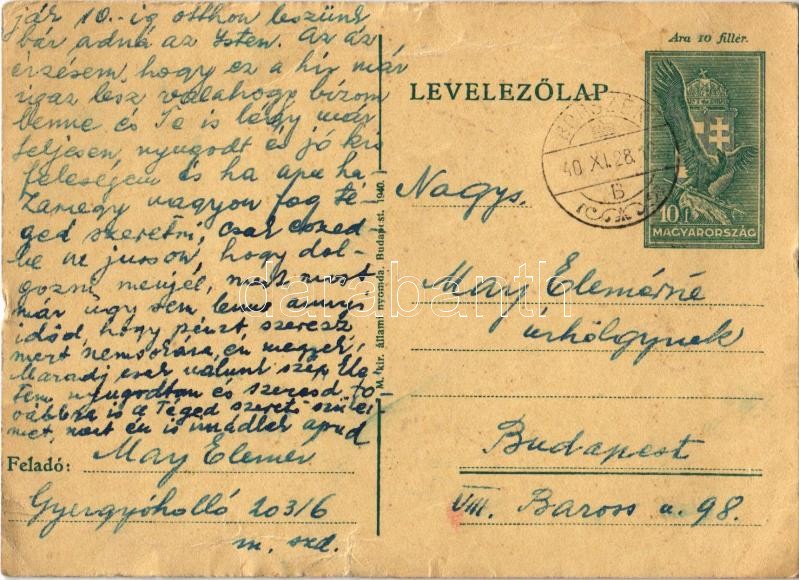 jár 10.-ig otthon leszünk
bár adná az Isten. Az az
érzésem, hogy ez a hír már
igaz lesz valahogy bízom
benne és Te is légy már
teljesen nyugodt és jó kis
feleségem és ha apu ha-
zamegy nagyon fog té-
ged szeretni, csak eszed-
be ne jusson, hogy dol-
gozni menjél, mert most
már úgy sem lenne annyi
időd, hogy pénzt szerezz
mert nemsokára én megyek,
Maradj csak nálunk szép
nyugodtan és szeresd to-
vábbra is a Téged szerető
mert én is imádlak apud
Feladó: May Elemér
Gyergyóholló 203/6
m. szd.
M. kir. állami nyomda, Budapest. 1940.
Ára 10 fillér.
LEVELEZŐLAP
40 XI. 28.
B
10 f
MAGYARORSZÁG
Nagys.
May Elemérné
úrhölgynek
Budapest
VIII. Baross u. 98.
darabanth